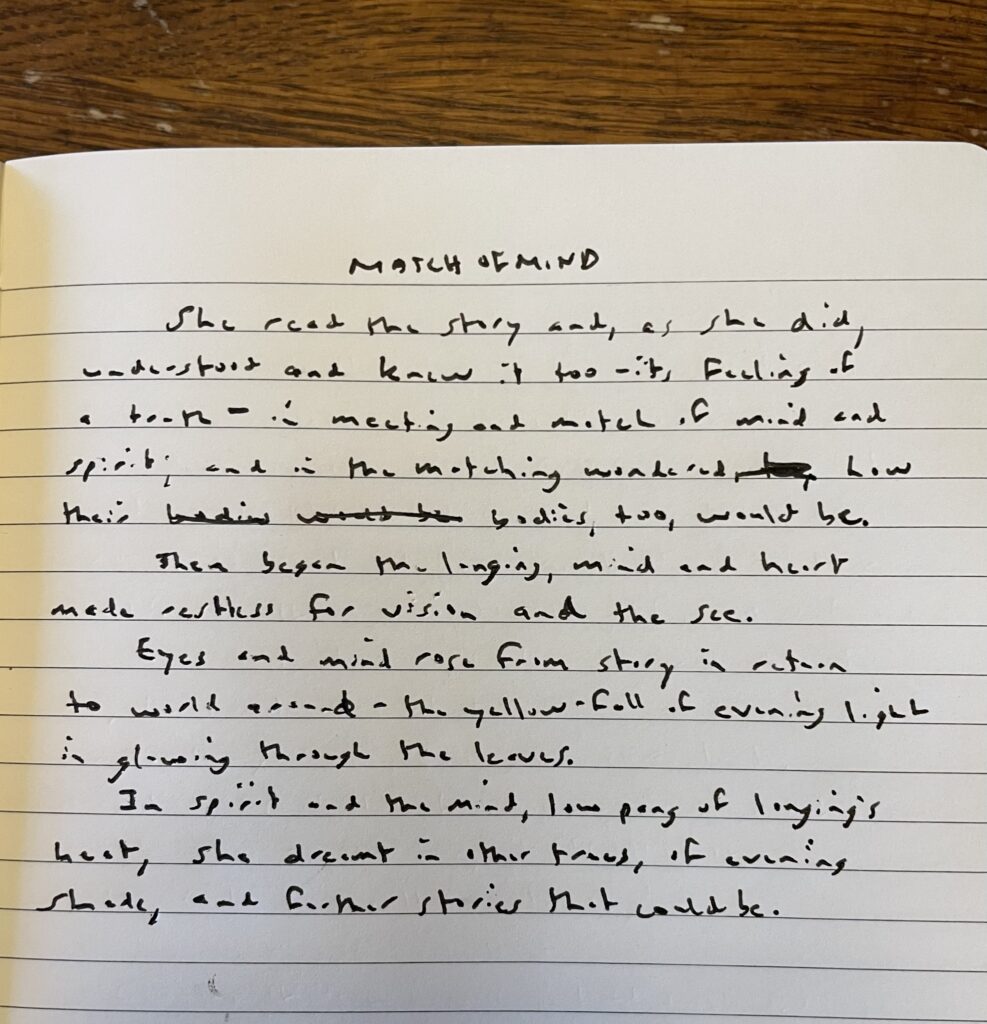 MATCH OF MIND
She read the story and, as she did,
understood and knew it too - its feeling of
a truth - in meeting and match of mind and
spirit; and in the matching wondered, how
their bodies would be bodies, too, would be.
Then began the longing, mind and heart
made restless for vision and the see.
Eyes and mind rose from story in return
to world around - the yellow-fall of evening light
in glowing through the leaves.
In spirit and the mind, low pang of longing's
heat, she dreamt in other trees, of evening
shade, and further stories that could be.